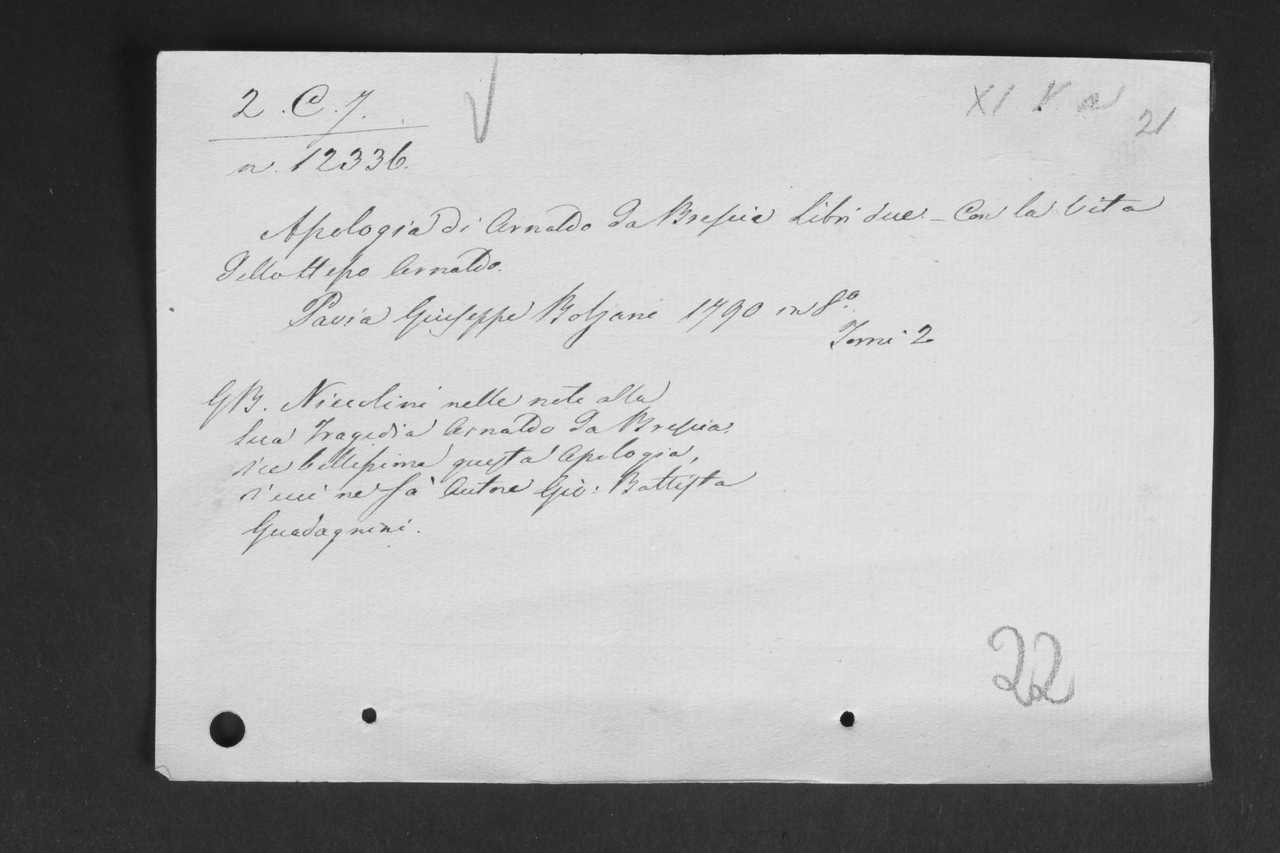 2. C. 7.
XI V n
21
n. 12336.
Apologia di Arnaldo da Brescia Libri due - Con la Vita
dello stesso Arnaldo.
Pavia Giuseppe Bolzani 1790 in 8º.
Tomi 2
GB. Niccolini nelle note alla
sua Tragedia Arnaldo da Brescia
dice bellissima questa Apologia,
di cui ne fa Autore Gio: Battista
Guadagnini.
22